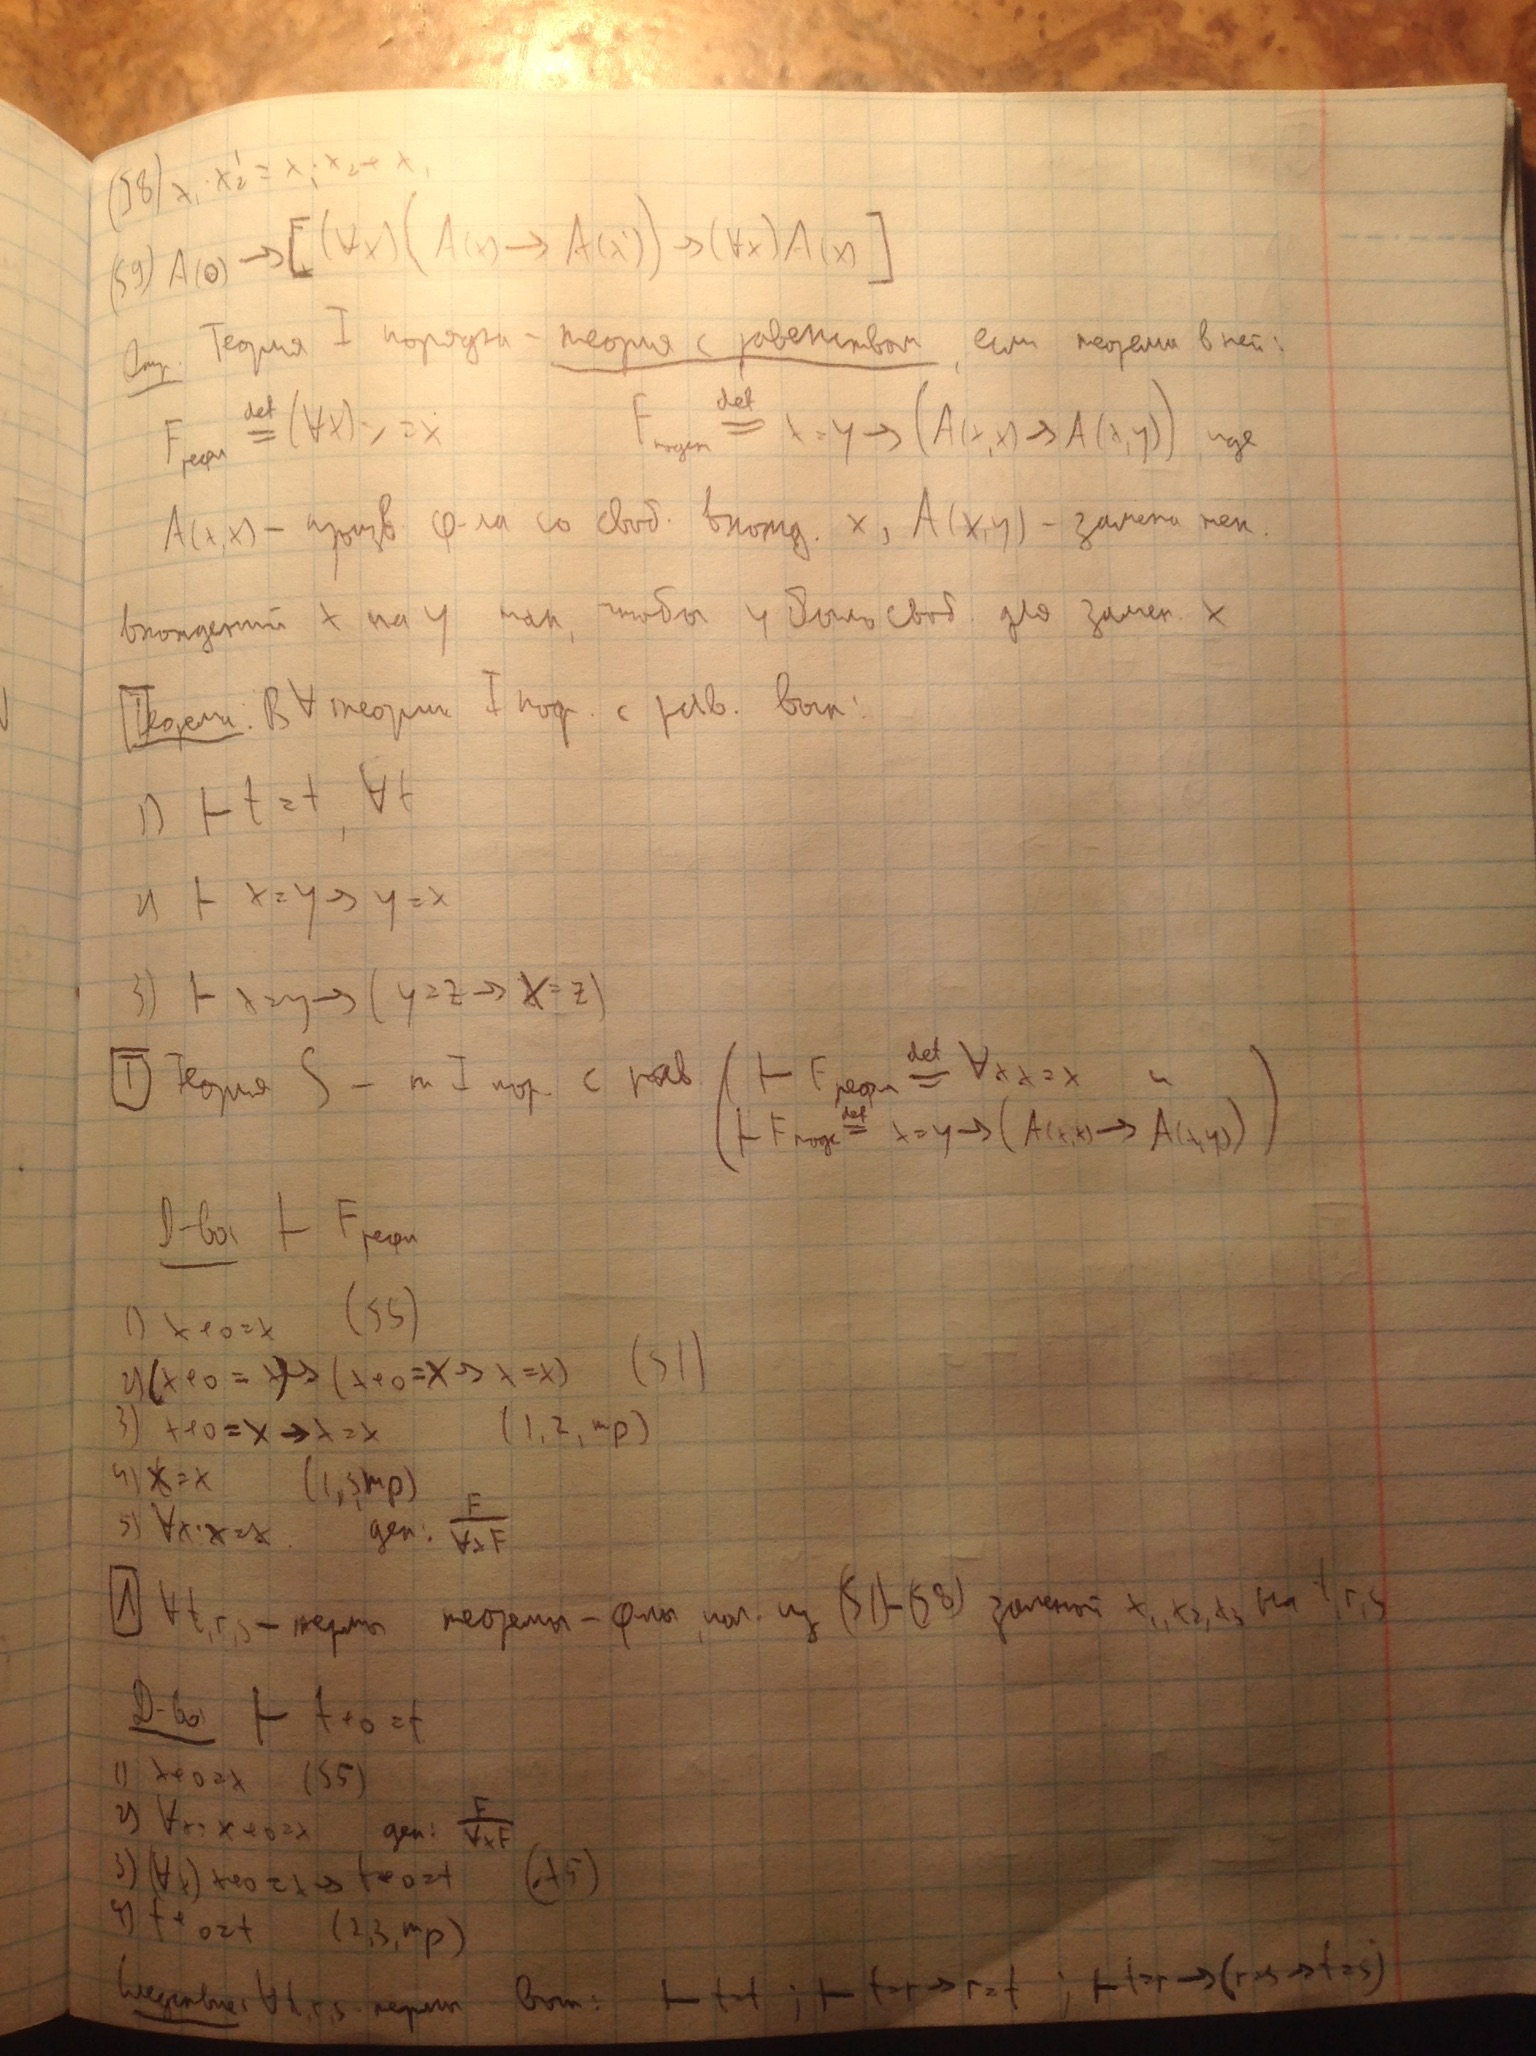 (S8) x₁·x₂' = x₁·x₂+x₁
(S9) A(0) → [(∀x)(A(x) → A(x')) → (∀x)A(x)]
Опр. Теория I порядка – теория с равенством, если теоремы в ней:
F рефл ≝ (∀x) x=x F подст ≝ x=y → (A(x,x) → A(x,y)) где
A(x,x) – произв. ф-ла со своб. вхожд. x, A(x,y) – замена нек.
вхождений x на y так, чтобы y было своб. для замен. x
Теорема: В ∀ теории I пор. с рав. вып:
1) ⊢ t=t, ∀t
2) ⊢ x=y → y=x
3) ⊢ x=y → (y=z → x=z)
Т Теория S – т I пор. с рав. (⊢ F рефл ≝ ∀x x=x и
⊢ F подс ≝ x=y → (A(x,x) → A(x,y)))
Д-во: ⊢ F рефл
1) x+0=x (S5)
2) (x+0=x) → (x+0=x → x=x) (S1)
3) x+0=x → x=x (1,2,mp)
4) x=x (1,3,mp)
5) ∀x·x=x gen: F/∀xF
Л ∀t,r,s – термы теоремы – ф-лы, пол. из (S1)-(S8) заменой x₁,x₂,x₃ на t,r,s
Д-во: ⊢ t+0=t
1) x+0=x (S5)
2) ∀x: x+0=x gen: F/∀xF
3) (∀x) x+0=x → t+0=t
4) t+0=t (2,3,mp)
Следствие: ∀t,r,s – термы вып: ⊢ t=t; ⊢ t=r → r=t; ⊢ t=r → (r=s → t=s)